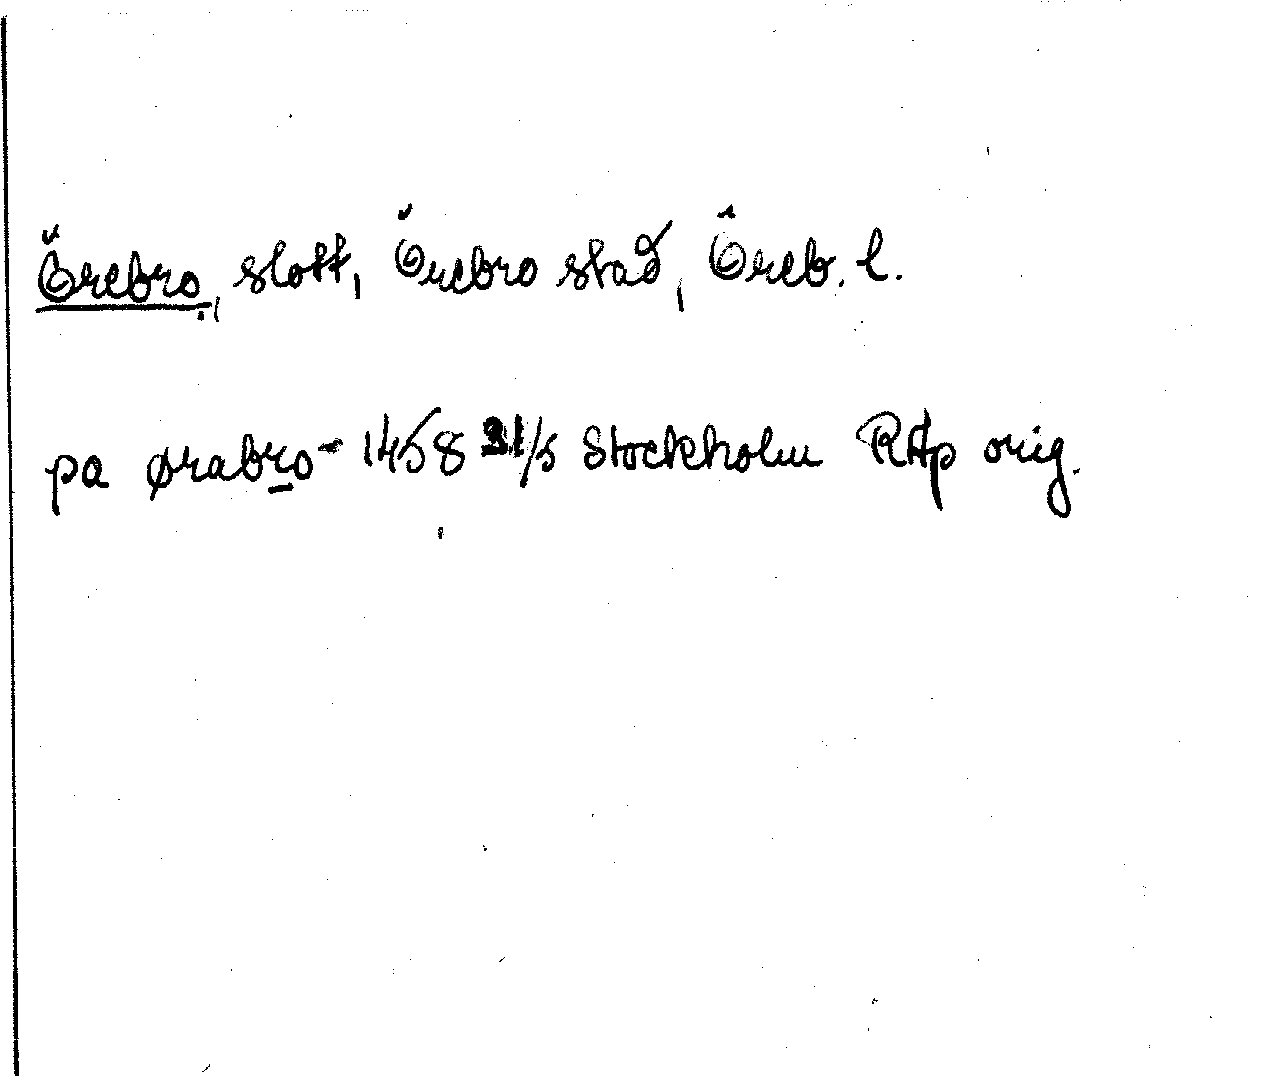 Örebro, slott, Örebro stad, Öreb. l.
pa ørabro - 1458 31/5 Stockholm RAp orig.